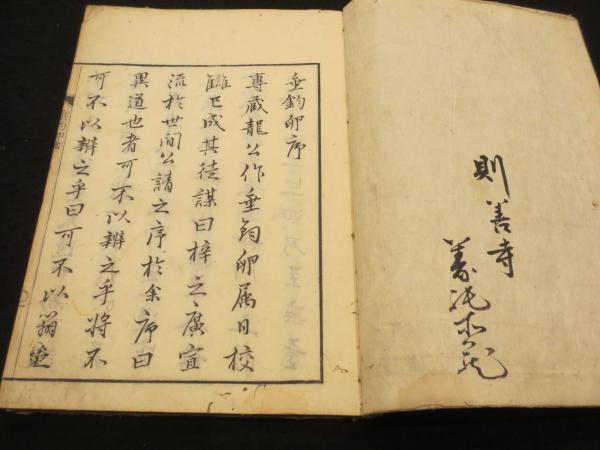 則善寺
垂釣卵序
専蔵龍公作垂釣卵属日校
讎已成其徒謀曰梓之廣宣
流於世間公請之序於余序曰
異道也者可不以辨之乎將不
可不以辨之乎曰可不以